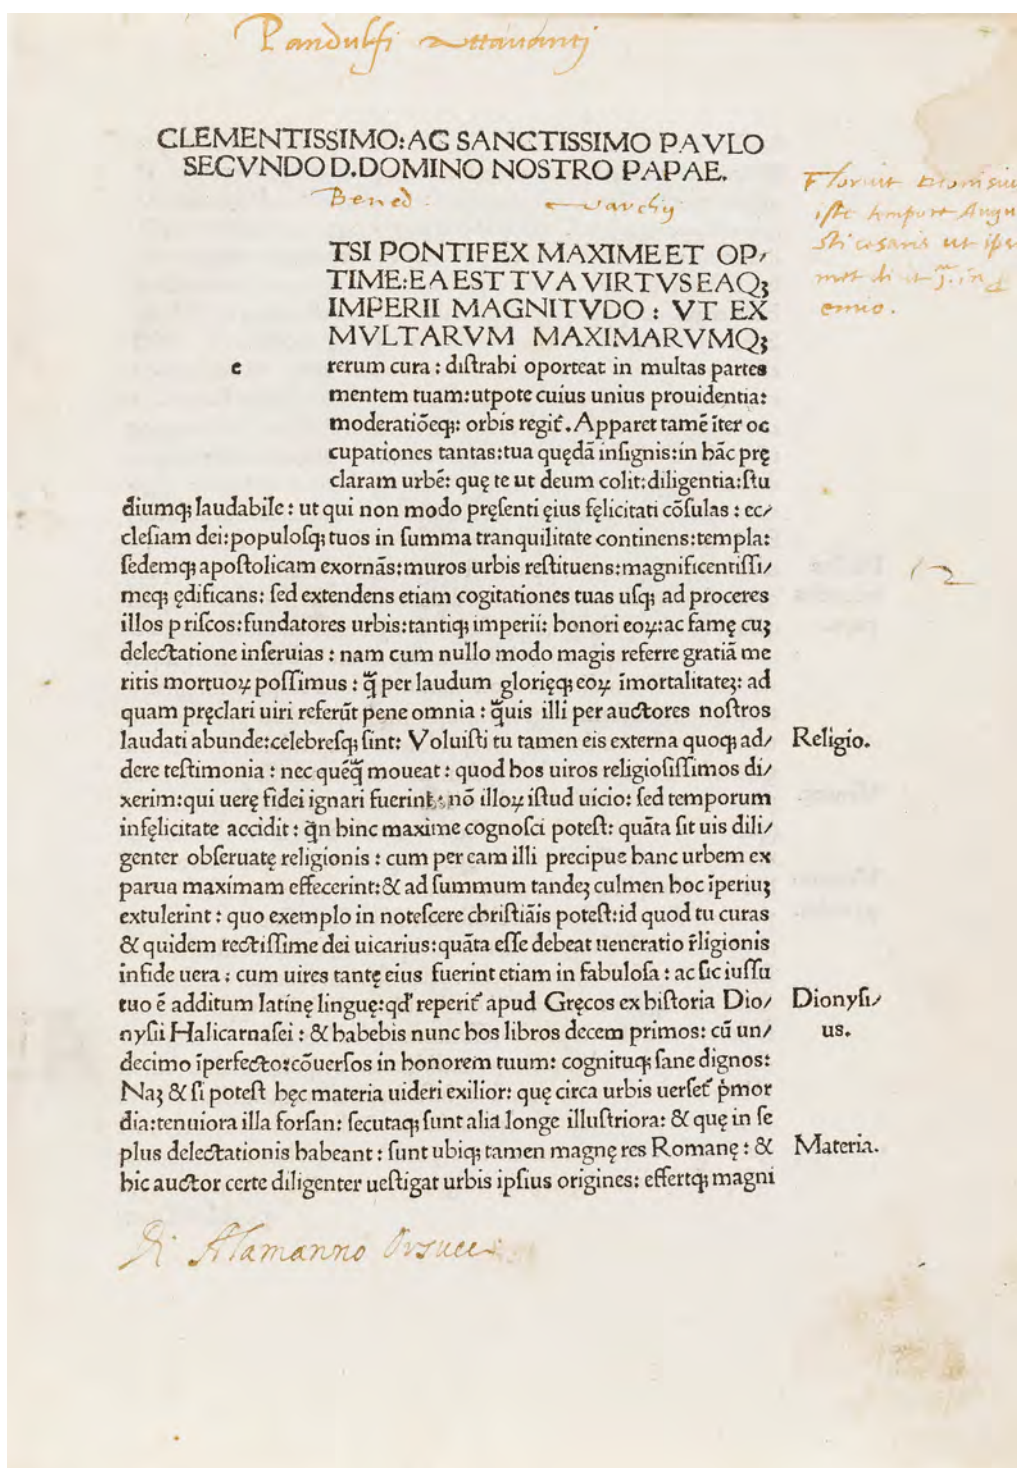 Pandulfi Attavanti
CLEMENTISSIMO: AC SANCTISSIMO PAVLO
SECVNDO D. DOMINO NOSTRO PAPAE.
Bened. Varchij
Floruit Dionisiu
iste tempore Augu
sti cesaris ut ipse
met di
emio.
TSI PONTIFEX MAXIME ET OP⸗
TIME: EA EST TVA VIRTVS EAQꝫ
IMPERII MAGNITVDO: VT EX
MVLTARVM MAXIMARVMQꝫ
e
rerum cura: diſtrahi oporteat in multas partes
mentem tuam: utpote cuius unius prouidentia:
moderatiõeqꝫ: orbis regit᷑. Apparet tamẽ ĩter oc
cupationes tantas: tua quędã inſignis: in hãc prę
claram urbẽ: quę te ut deum colit: diligentia: ſtu
diumqꝫ laudabile: ut qui non modo pręſenti ęius fęlicitati cõſulas: ec⸗
cleſiam dei: populoſqꝫ tuos in ſumma tranquilitate continens: templa:
ſedemqꝫ apoſtolicam exornãs: muros urbis reſtituens: magnificentiſſi⸗
meqꝫ ędificans: ſed extendens etiam cogitationes tuas uſqꝫ ad proceres
illos p riſcos: fundatores urbis: tantiqꝫ imperii: honori eoꝝ: ac famę cuꝫ
delectatione inſeruias: nam cum nullo modo magis referre gratiã me
ritis mortuoꝝ poſſimus: q̃ꝫ per laudum glorięqꝫ eoꝝ ĩmortalitateꝫ: ad
quam pręclari uiri referũt pene omnia: q̃uis illi per auctores noſtros
laudati abunde: celebreſqꝫ ſint: Voluiſti tu tamen eis externa quoqꝫ ad⸗
Religio.
dere teſtimonia: nec quẽq̃ moueat: quod hos uiros religioſiſſimos di⸗
xerim: qui uerę fidei ignari fuerint: nõ illoꝝ iſtud uicio: ſed temporum
infęlicitate accidit: q̃n hinc maxime cognoſci poteſt: quãta ſit uis dili⸗
genter obſeruatę religionis: cum per eam illi precipue hanc urbem ex
parua maximam effecerint: & ad ſummum tandeꝫ culmen hoc ĩperiuꝫ
extulerint: quo exemplo in noteſcere chriſtiãis poteſt: id quod tu curas
& quidem rectiſſime dei uicarius: quãta eſſe debeat ueneratio r̃ligionis
infide uera: cum uires tantę eius fuerint etiam in fabuloſa: ac ſic iuſſu
tuo ẽ additum latinę linguę: qd̓ reperit᷑ apud Gręcos ex hiſtoria Dio⸗
Dionyſi⸗
nyſii Halicarnaſei: & habebis nunc hos libros decem primos: cũ un⸗
us.
decimo ĩperfecto: cõuerſos in honorem tuum: cognituqꝫ ſane dignos:
Naꝫ & ſi poteſt hęc materia uideri exilior: quę circa urbis uerſet᷑ p̓mor
dia: tenuiora illa forſan: ſecutaqꝫ ſunt alia longe illuſtriora: & quę in ſe
plus delectationis habeant: ſunt ubiqꝫ tamen magnę res Romanę: &
Materia.
hic auctor certe diligenter ueſtigat urbis ipſius origines: effertqꝫ magni
Di Alamanno Orsucci